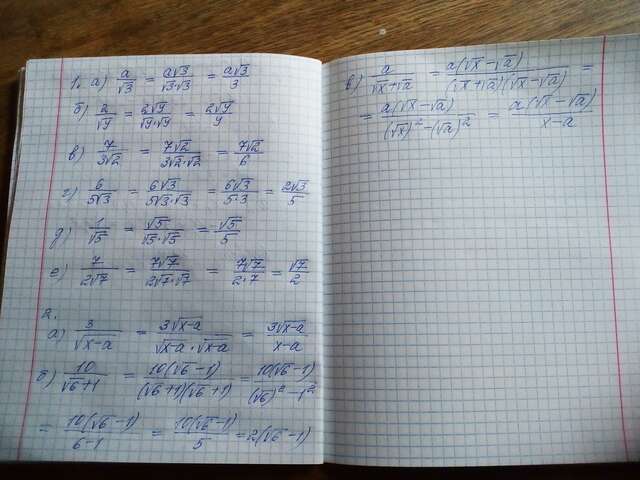 1. а) a/√3 = a√3/√3·√3 = a√3/3
б) 2/√y = 2√y/√y·√y = 2√y/y
в) 7/3√2 = 7√2/3√2·√2 = 7√2/6
г) 6/5√3 = 6√3/5√3·√3 = 6√3/5·3 = 2√3/5
д) 1/√5 = √5/√5·√5 = √5/5
е) 7/2√7 = 7√7/2√7·√7 = 7√7/2·7 = √7/2
2.
а) 3/√x-a = 3√x-a/√x-a·√x-a = 3√x-a/x-a
б) 10/√6+1 = 10(√6-1)/(√6+1)(√6+1) = 10(√6-1)/(√6)²-1²
= 10(√6-1)/6-1 = 10(√6-1)/5 = 2(√6-1)
в) a/√x+√a = a(√x-√a)/(√x+√a)(√x-√a) =
= a(√x-√a)/(√x)²-(√a)² = a(√x-√a)/x-a